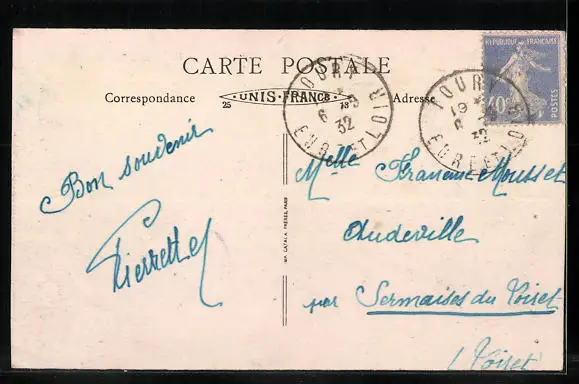 CARTE POSTALE
Correspondance
25 UNIS-FRANCE 13
Adresse
REPUBLIQUE FRANÇAISE
40c
POSTES
TOURY
6 - 8
32
EURE ET LOIR
TOURY
19
6 - 8
32
EURE ET LOIR
Bon souvenir
Pierrette
IMP. CATALA FRÈRES, PARIS
Melle Mousset
Audeville
par Sermaises du Loiret
(Loiret)